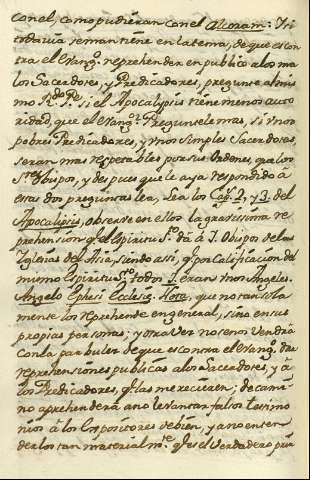 con el, como pudieran con el Alcoram. Si
todavia se mantiene en la tema, de que es con
tra el evang.º reprehender en publico a los ma
los Sacerdotes, y Predicadores, pregunte al mis
mo R.do P.e si el Apocalypsis tiene menos auto
ridad, que el evang.º? Preguntele mas, si unos
pobres Predicadores, y unos simples Sacerdotes,
seran mas respetables por sus Ordenes, que los
S.res Obispos, y despues que le aya respondido a
estas dos preguntas lea, Lea los Cap. 2, y 3. del
Apocalipsis, observe en ellos la gravissima re
prehension q.e el Espiritu S.to dà à 7. Obispos de las
Iglesias del Asia, siendo assi, q.e por calificacion del
mismo Espiritu S.to todos 7. eran unos Angeles.
Angelo Ephesi Ecclesiæ. Note, que no tan sola
mente los reprehende en general, sino en sus
propias personas; y otra ver no se nos vendrà
con la parbuler de que es contra el evang.º dar
reprehensiones publicas a los Sacerdotes, y à
los Predicadores, q.e las merecieren; de cami
no aprehenderà a no levantar falsos testimo
nios à los Expositores de bien, y a no enten
derlos tan material m.te q.e es el verdadero prin